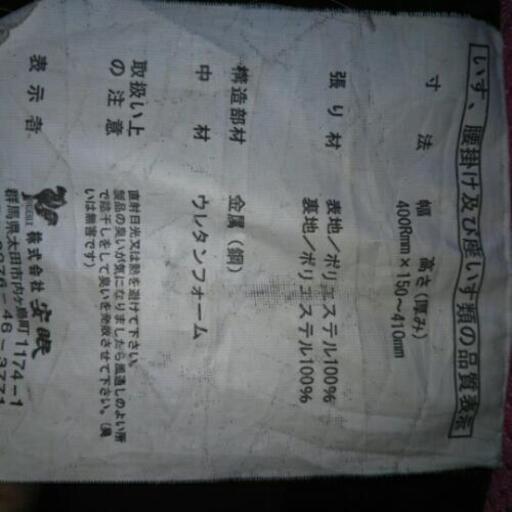 いす、腰掛け及び座いす類の品質表示
寸法 幅 高さ(厚み)
400Rmm×150~410mm
張り材 表地/ポリエステル100%
裏地/ポリエステル100%
構造部材 金属(鋼)
中材 ウレタンフォーム
取扱い上の注意 直射日光又は熱を避けて下さい。
製品の臭いが気になりましたら風通しのよい所
で陰干しをして臭いを発散させて下さい。(臭
いは無害です)
表示者 株式会社 安眠
群馬県太田市内ケ島町1174-1
0276-46-3771